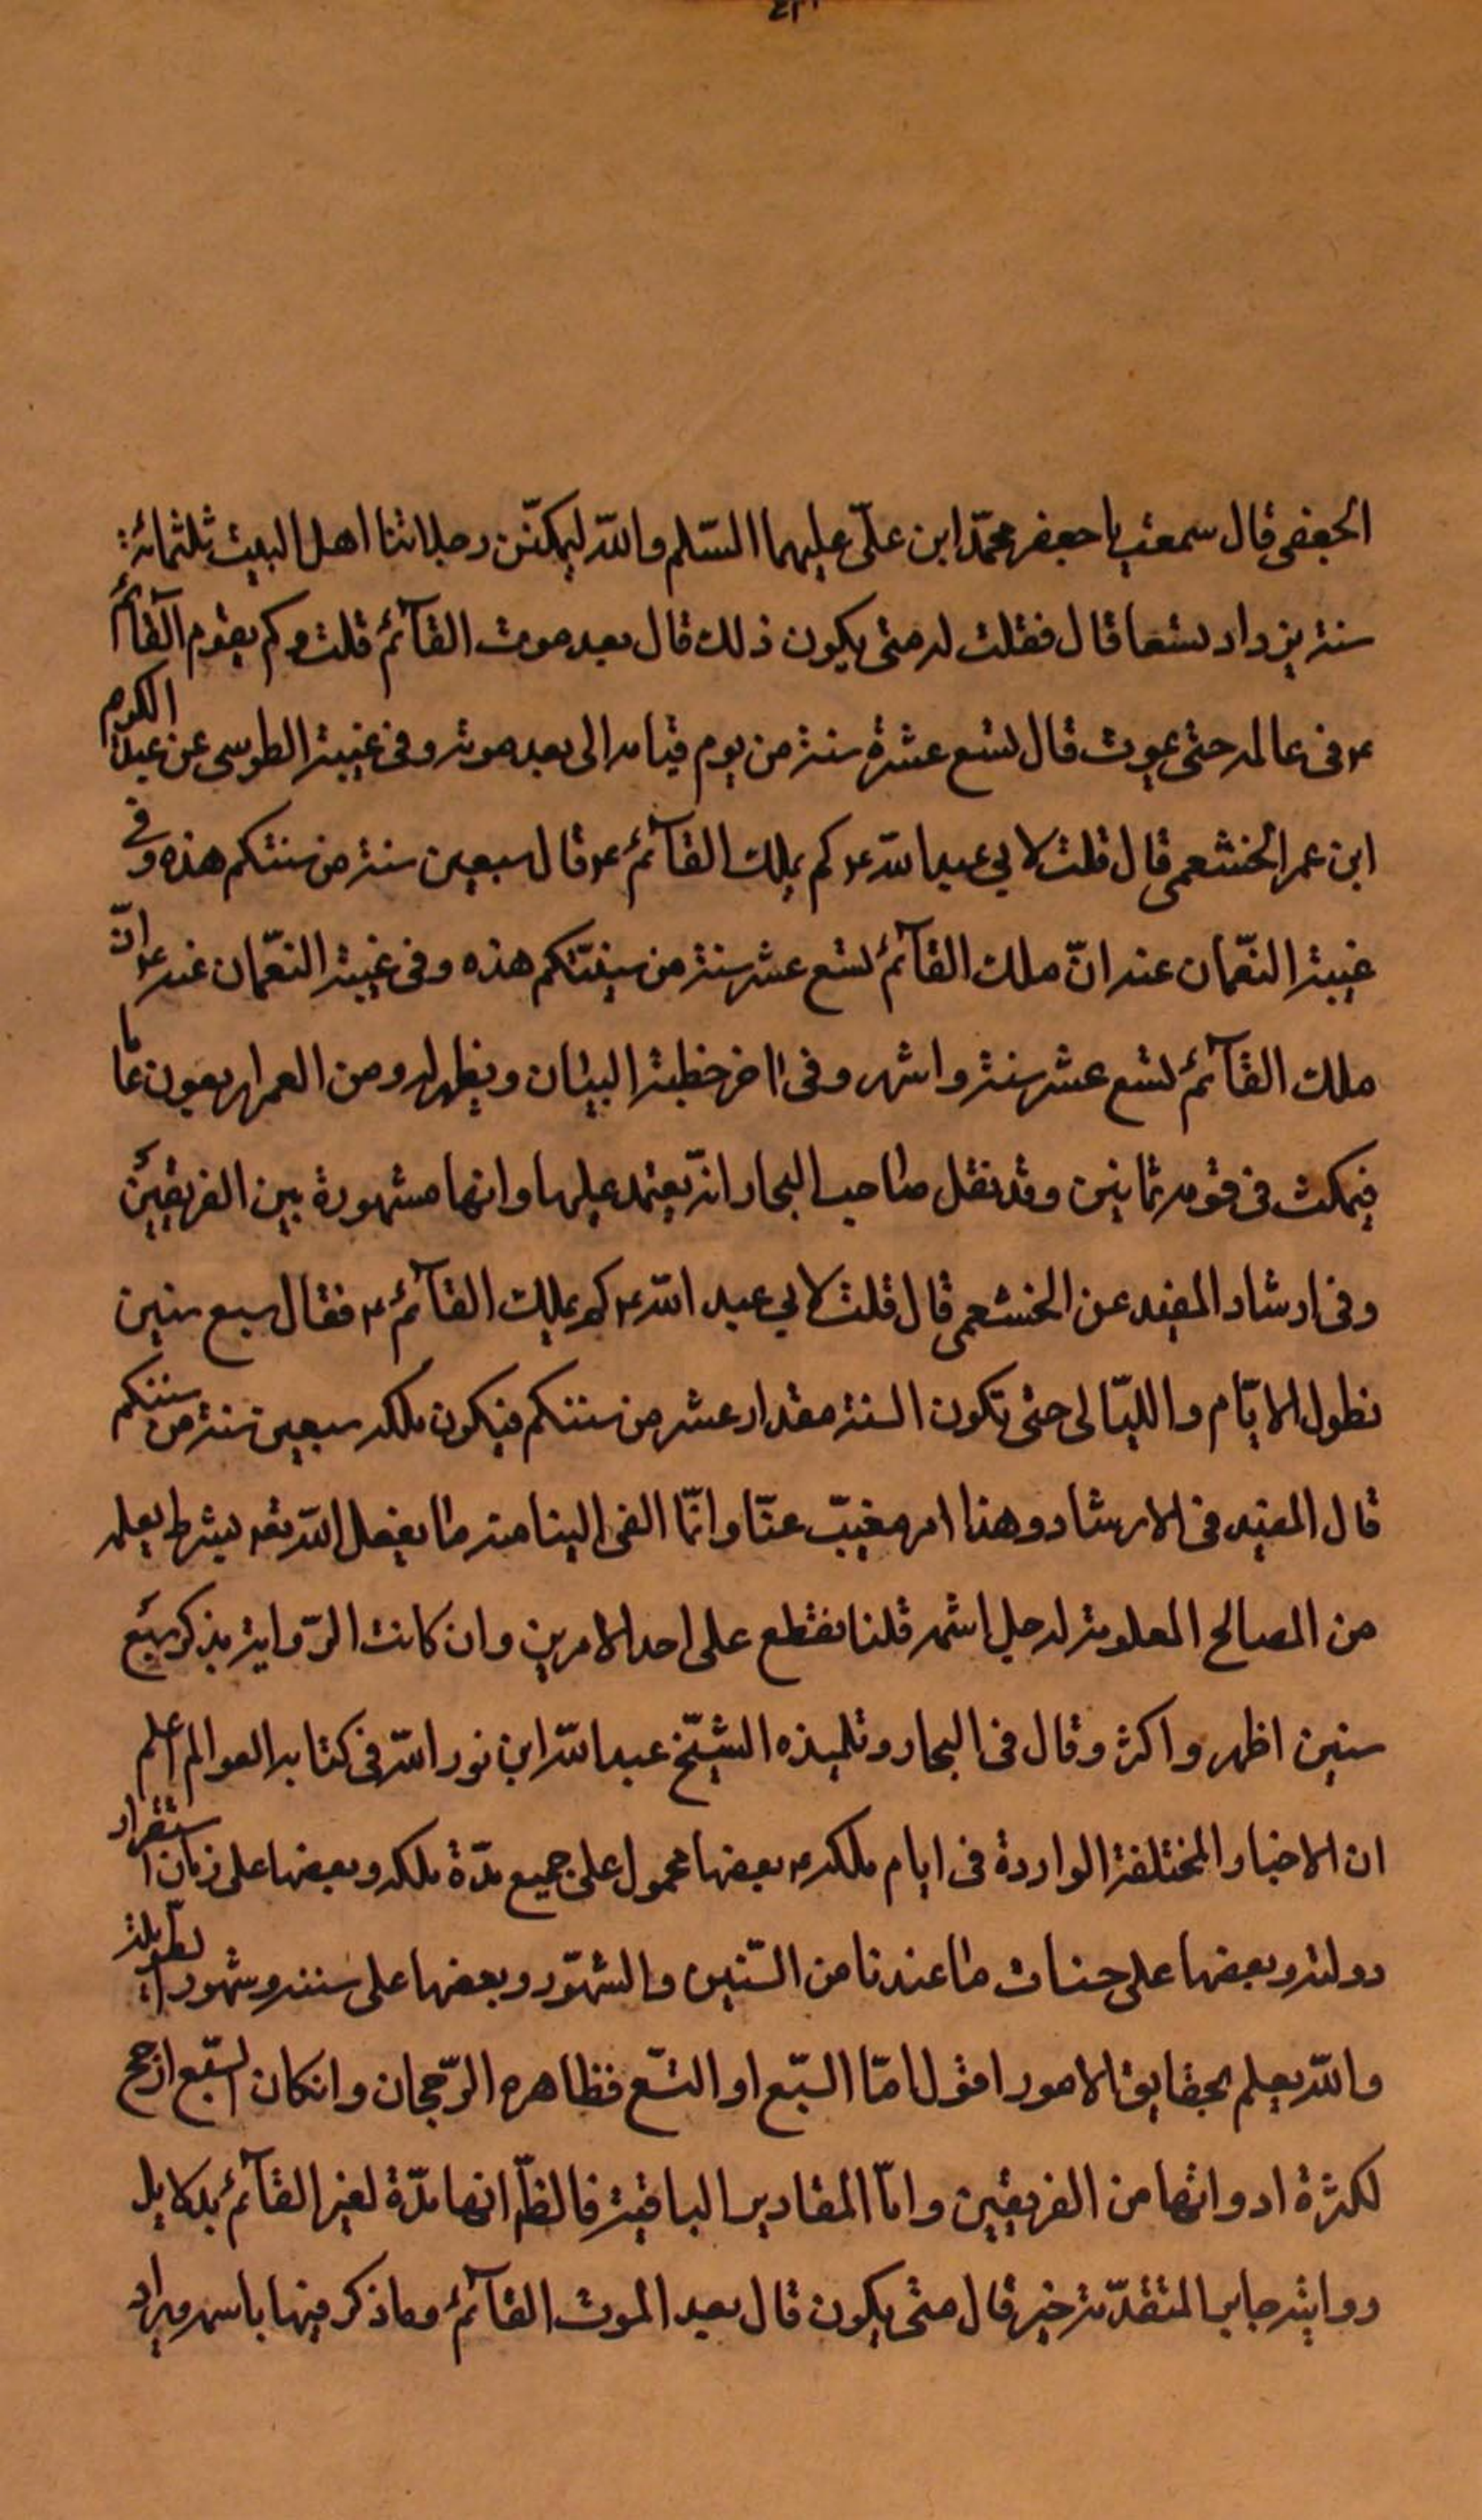 الجعفى قال سمعت ابا جعفر محمّد ابن علىّ عليهما السّلم والله ليمكثن رجلا منا اهل البيت ثلثمائة
سنة يزداد تسعا قال فقلت له متى يكون ذلك قال بعد موت القآئم قلت وكم يقوم القآئم
ع فى عالمه حتى يموت قال تسع عشرة سنة من يوم قيامه الى بعد موته وفى غيبة الطوسى عن عبد الكريم
ابن عمر الخثعمى قال قلت لابى عبد الله ع كم يملك القآئم ع قال سبعين سنة من سنتكم هذه وفى
غيبة النعّمان عنه انّ ملك القآئم تسع عشر سنة من سنتكم هذه وفى غيبة النعّمان عنه ع انّ
ملك القآئم تسع عشر سنة واشهر وفى اخر خطبة البيان ويظهر له ومن العمر اربعون عاما
فيمكث فى قومه ثمانين وقد نقل صاحب البحار انه يعتمد عليها وانها مشهورة بين الفريقين
وفى ارشاد المفيد عن الخثعمى قال قلت لابى عبد الله ع كم يملك القآئم ع فقال سبع سنين
تطول الايّام والليّالى حتى تكون السنة مقدار عشر من سنتكم فيكون ملكه سبعين سنة من سنتكم
قال المفيد فى الارشاد وهذا امر مغيبّ عنّا وانّما القى الينا منه ما يفعل الله تعه بشرط يعلمه
من المصالح المعلومة له جل اسمه فلنا نقطع على احد الامرين وان كانت الرّواية بذكر سبع
سنين اظهر واكثر وقال فى البحار وتلميذه الشيّخ عبد الله ابن نور الله فى كتابه العوالم اعلم
ان الاخبار المختلفة الواردة فى ايام ملكه ع بعضها محمول على جميع مدّة ملكه وبعضها على زمان استقرار
دولته وبعضها على حساب ما عندنا من السّنين والشهّور وبعضها على سننه وشهوره الطّويلة
والله يعلم بحقايق الامور اقول امّا السّبع او التسّع فظاهره الرّجحان وانكان السّبع ارجح
لكثرة ادواتها من الفريقين وامّا المقادير الباقية فالظّ انها مدّة لغير القآئم بدلايل
رواية جابر المتقدّمة خبر قال متى يكون قال بعد الموت القآئم وما ذكر فيها باسمه ميراد